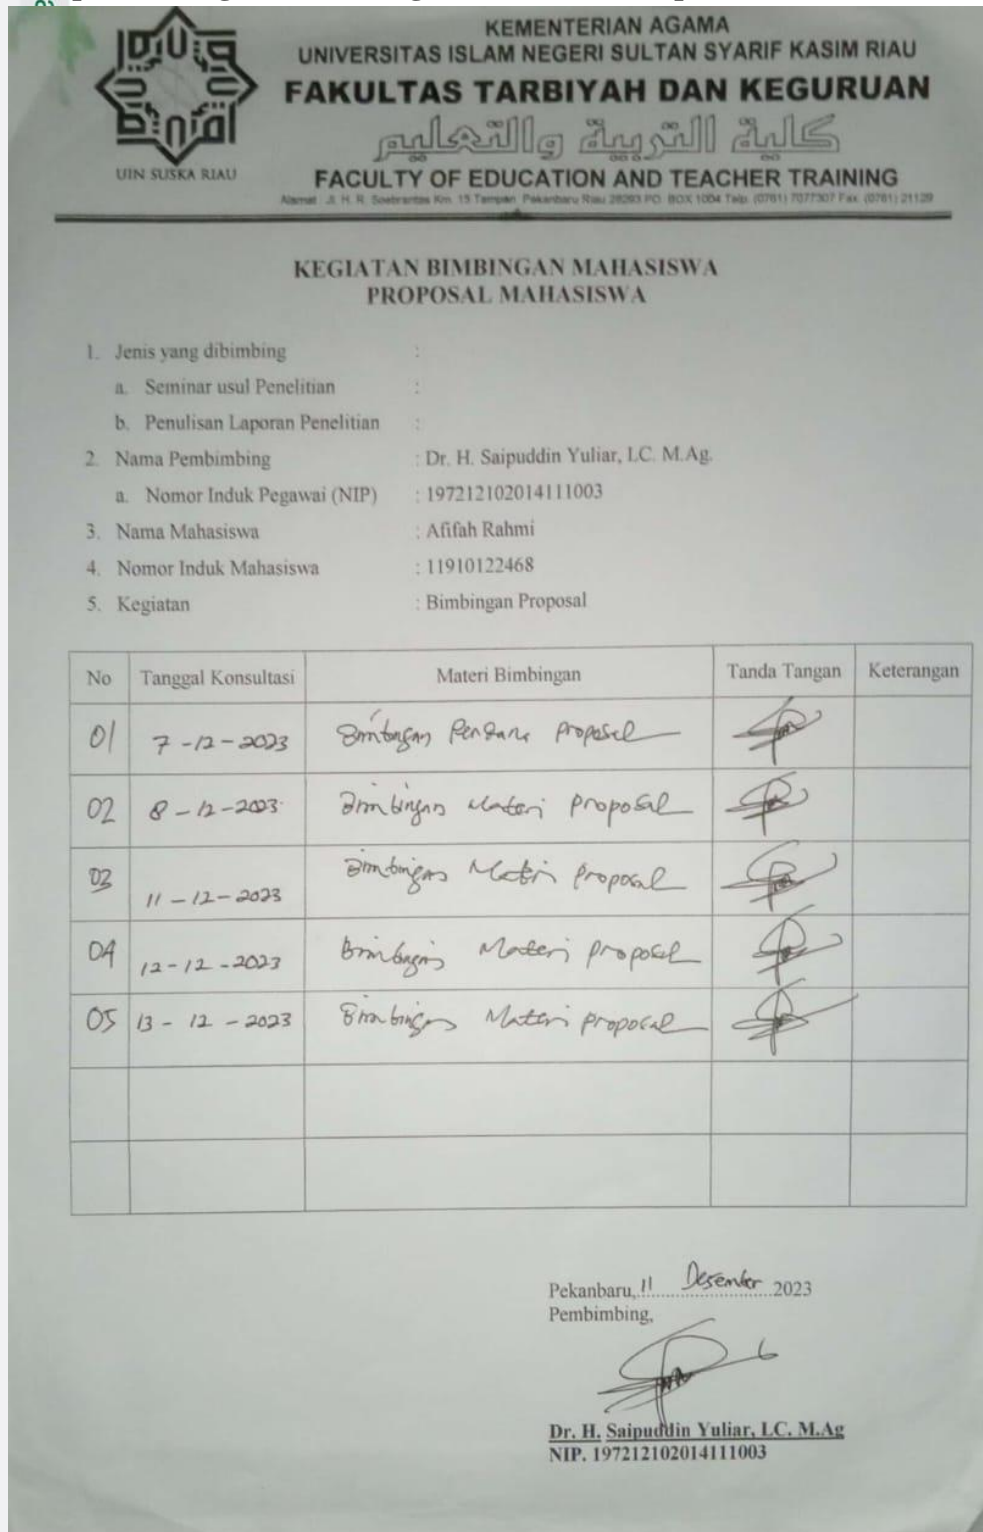 UIN SUSKA RIAU
KEMENTERIAN AGAMA
UNIVERSITAS ISLAM NEGERI SULTAN SYARIF KASIM RIAU
FAKULTAS TARBIYAH DAN KEGURUAN
كلية التربية والتعليم
FACULTY OF EDUCATION AND TEACHER TRAINING
Alamat : Jl. H. R. Soebrantas Km. 15 Tampan Pekanbaru Riau 28293 PO. BOX 1004 Telp. (0761) 7077307 Fax. (0761) 21129
KEGIATAN BIMBINGAN MAHASISWA
PROPOSAL MAHASISWA
1. Jenis yang dibimbing :
a. Seminar usul Penelitian :
b. Penulisan Laporan Penelitian :
2. Nama Pembimbing : Dr. H. Saipuddin Yuliar, LC. M.Ag.
a. Nomor Induk Pegawai (NIP) : 197212102014111003
3. Nama Mahasiswa : Afifah Rahmi
4. Nomor Induk Mahasiswa : 11910122468
5. Kegiatan : Bimbingan Proposal
No Tanggal Konsultasi Materi Bimbingan Tanda Tangan Keterangan
01 7-12-2023 Bimbingan proposal
02 8-12-2023 Bimbingan Materi proposal
03 11-12-2023 Bimbingan Materi proposal
04 12-12-2023 Bimbingan Materi proposal
05 13-12-2023 Bimbingan Materi proposal
Pekanbaru, 11 Desember 2023
Pembimbing,
Dr. H. Saipuddin Yuliar, LC. M.Ag
NIP. 197212102014111003